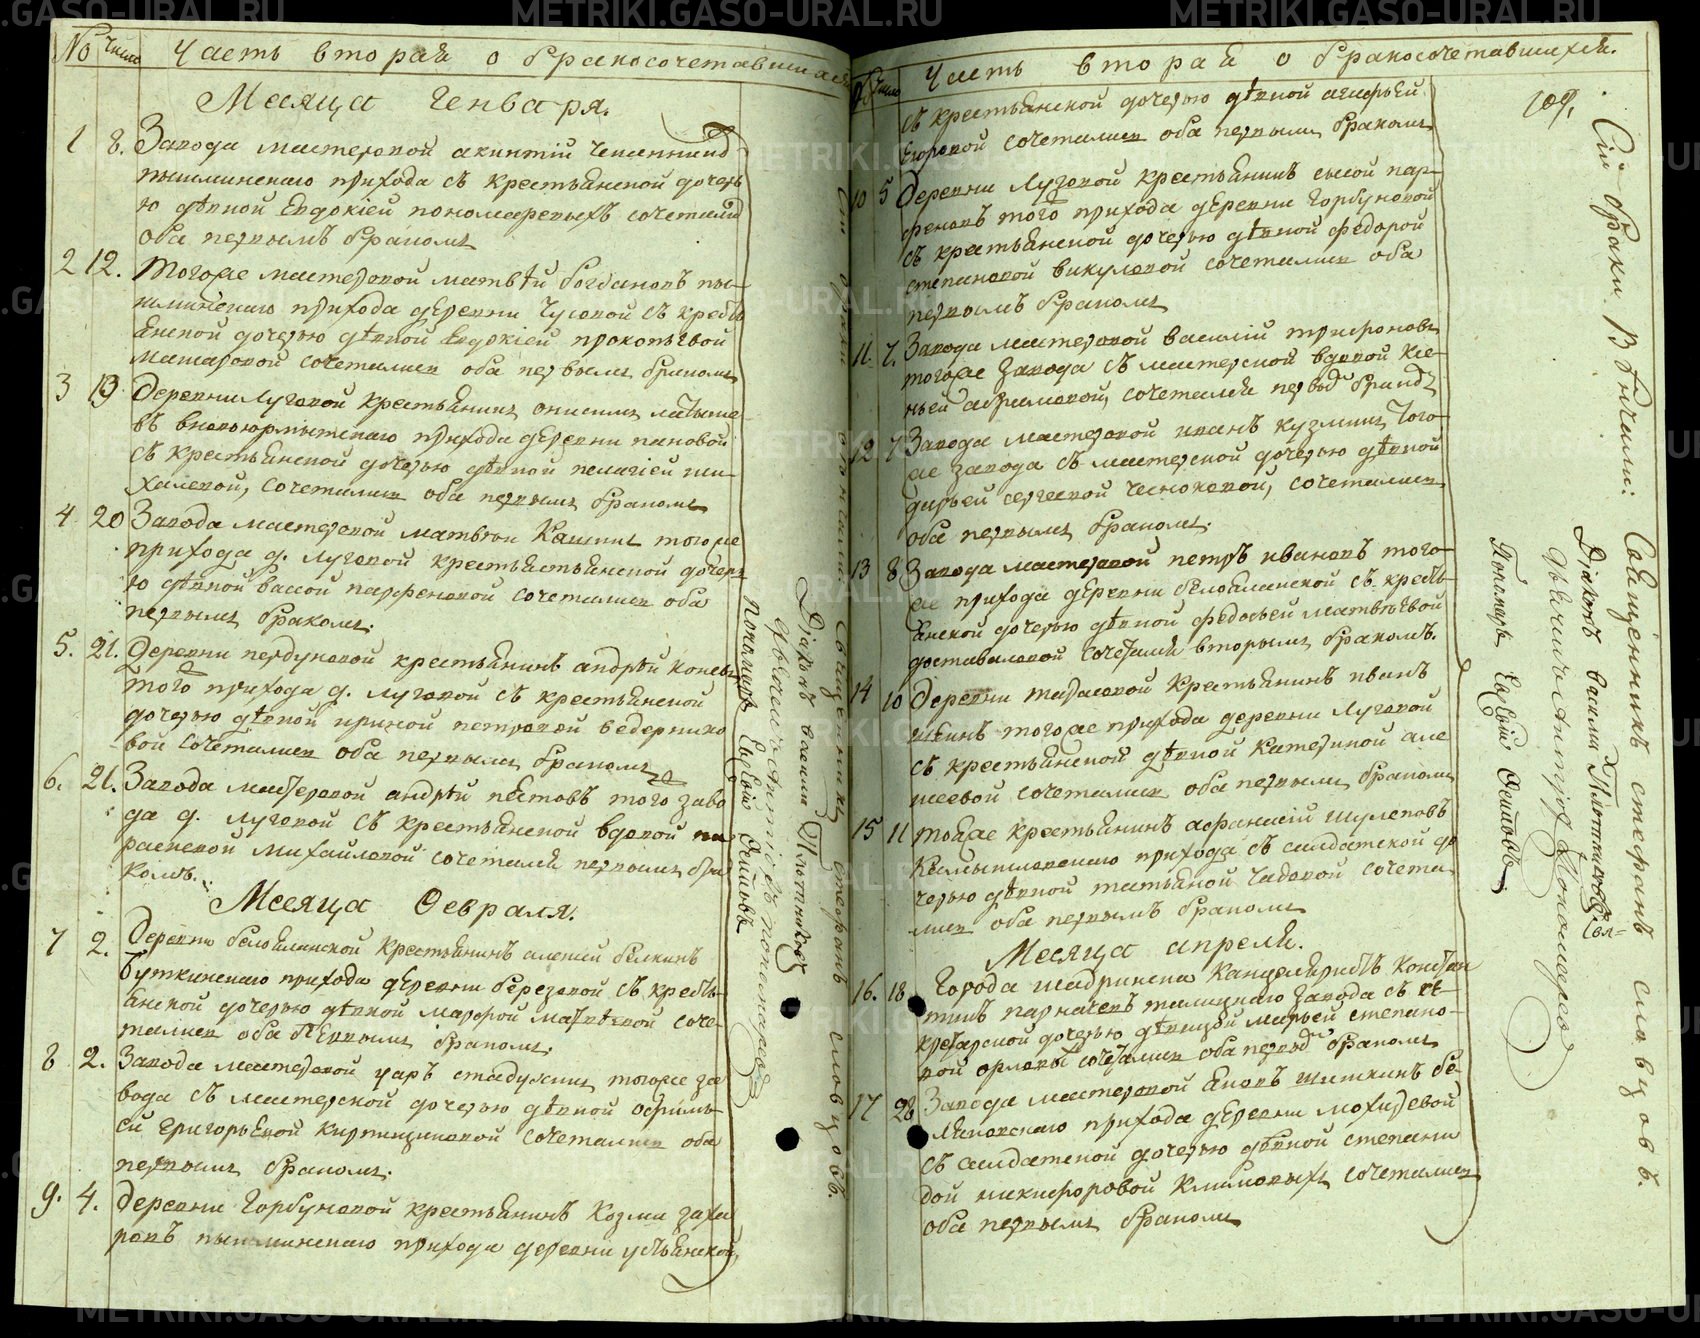 No Число Часть вторая о бракосочетавшихся
Месяца Генваря.
1 8. Завода мастеровой акинтий
пышминскаго прихода съ крестьянской дочерь
ю девкой Евдокией пономаревыхъ сочетались
оба первымъ бракомъ
2 12. Тогоже мастеровой матвей богдановъ пы-
шминскаго прихода деревни Чусовой съ кресть
янской дочерью девкой Евдокией прокопьевой
сочетались оба первымъ бракомъ
3 19. Деревни Луговой крестьянинъ
прихода деревни пановой
съ крестьянской дочерью девкой пелагией ми-
халевой, сочетались оба первымъ бракомъ
4. 20 Завода мастеровой матвей Кашинъ тогоже
прихода д. луговой крестьянской дочерь
ю девкой васой парфеновой сочетались оба
первымъ бракомъ.
5. 21. Деревни крестьянинъ андрей коневъ
того прихода д. луговой съ крестьянской
дочерью девкой ириной петровой ведернико
вой сочетались оба первымъ бракомъ
6. 21. Завода мастеровой андрей пестовъ того заво
да д. луговой съ крестьянской вдовой па
раскевой михайловой сочетался первымъ бра
комъ.
Месяца Февраля.
7 2. Деревни белоелинской крестьянинъ алексей белкинъ
буткинскаго прихода деревни березовой съ кресть-
янской дочерью девкой марфой матвевой соче-
тались оба первымъ бракомъ.
8 2. Завода мастеровой уаръ стадухинъ тогоже за
вода съ мастерской дочерью девкой офимь-
ей григорьевой кирпищиковой сочетались оба
первымъ бракомъ.
9. 4. Деревни Горбуновой крестьянинъ Козма заха
ровъ пышминскаго прихода деревни устьянской,
Сии браки венчали: Священникъ стефанъ словцовъ.
Дьяконъ василий Плотниковъ
Пономарь Евгений Осиповъ
No Число Часть вторая о бракосочетавшихся.
109.
съ крестьянской дочерью девкой агафьей
Егоровой сочетались оба первымъ бракомъ
10 5 Деревни луговой крестьянинъ сысой пар-
феновъ того прихода деревни Горбуновой
съ крестьянской дочерью девкой федорой
степановой викуловой сочетались оба
первымъ бракомъ
11. 7. Завода мастеровой василий трифоновъ
тогоже завода съ мастерской вдовой
сочетался первымъ бракомъ
12 7 Завода мастеровой иванъ кузминъ того-
же завода съ мастерской дочерью девкой
дарьей сергеевой чесноковой, сочетались
оба первымъ бракомъ.
13 8 Завода мастеровой петръ ивановъ того-
же прихода деревни белоелинской съ кресть-
янской дочерью девкой федосьей матвеевой
доставаловой сочетался вторымъ бракомъ.
14 10 Деревни тарасовой крестьянинъ иванъ
тогоже прихода деревни луговой
съ крестьянской девкой катериной але
шеевой сочетались оба первымъ бракомъ
15 11 тояже крестьянинъ афанасий шулеповъ
камышловскаго прихода съ салдатской до
черью девкой татьяной чадовой сочета
лись оба первымъ бракомъ
Месяца апреля.
16. 18 Города шадринска канцеляристъ констан
тинъ талицкаго завода съ се-
кретарской дочерью девицой марьей степано-
вой орловы сочетались оба первымъ бракомъ
17 28 Завода мастеровой яковъ шиткинъ бе-
ляковскаго прихода деревни мохиревой
съ салдатской дочерью девкой степани
дой никифоровой климовыхъ сочетались
оба первымъ бракомъ
Сии браки Венчали: Священникъ стефанъ словцовъ.
Дьяконъ василий Плотниковъ
Пономарь Евгений Осиповъ
METRIKI.GASO-URAL.RU